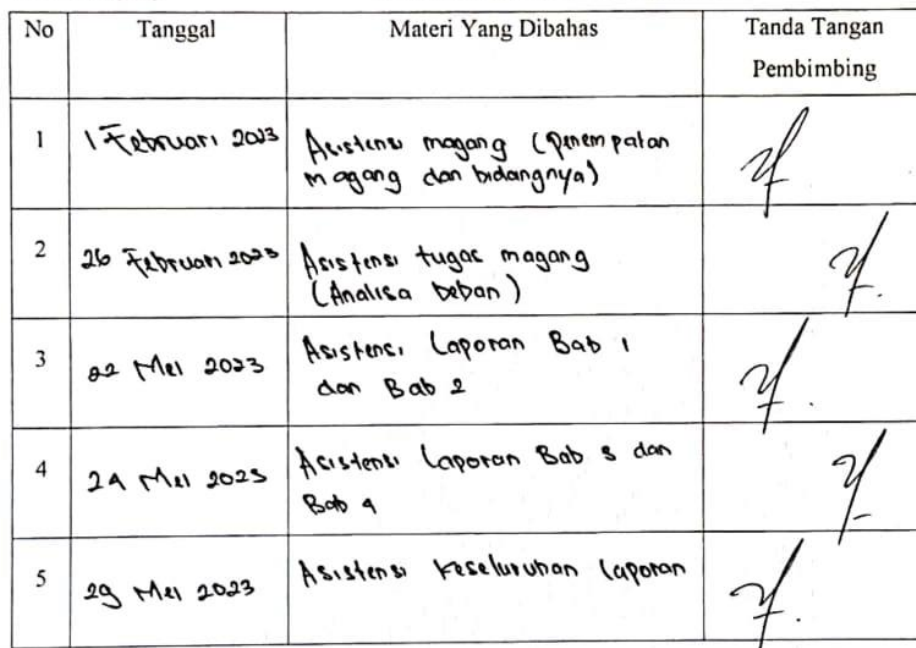 No Tanggal Materi Yang Dibahas Tanda Tangan
Pembimbing
1 1 Februari 2023 Asistensi magang (penempatan
magang dan bidangnya)
2 26 Februari 2023 Asistensi tugas magang
(Analisa beban)
3 22 Mei 2023 Asistensi Laporan Bab 1
dan Bab 2
4 24 Mei 2023 Asistensi Laporan Bab 3 dan
Bab 4
5 29 Mei 2023 Asistensi keseluruhan laporan